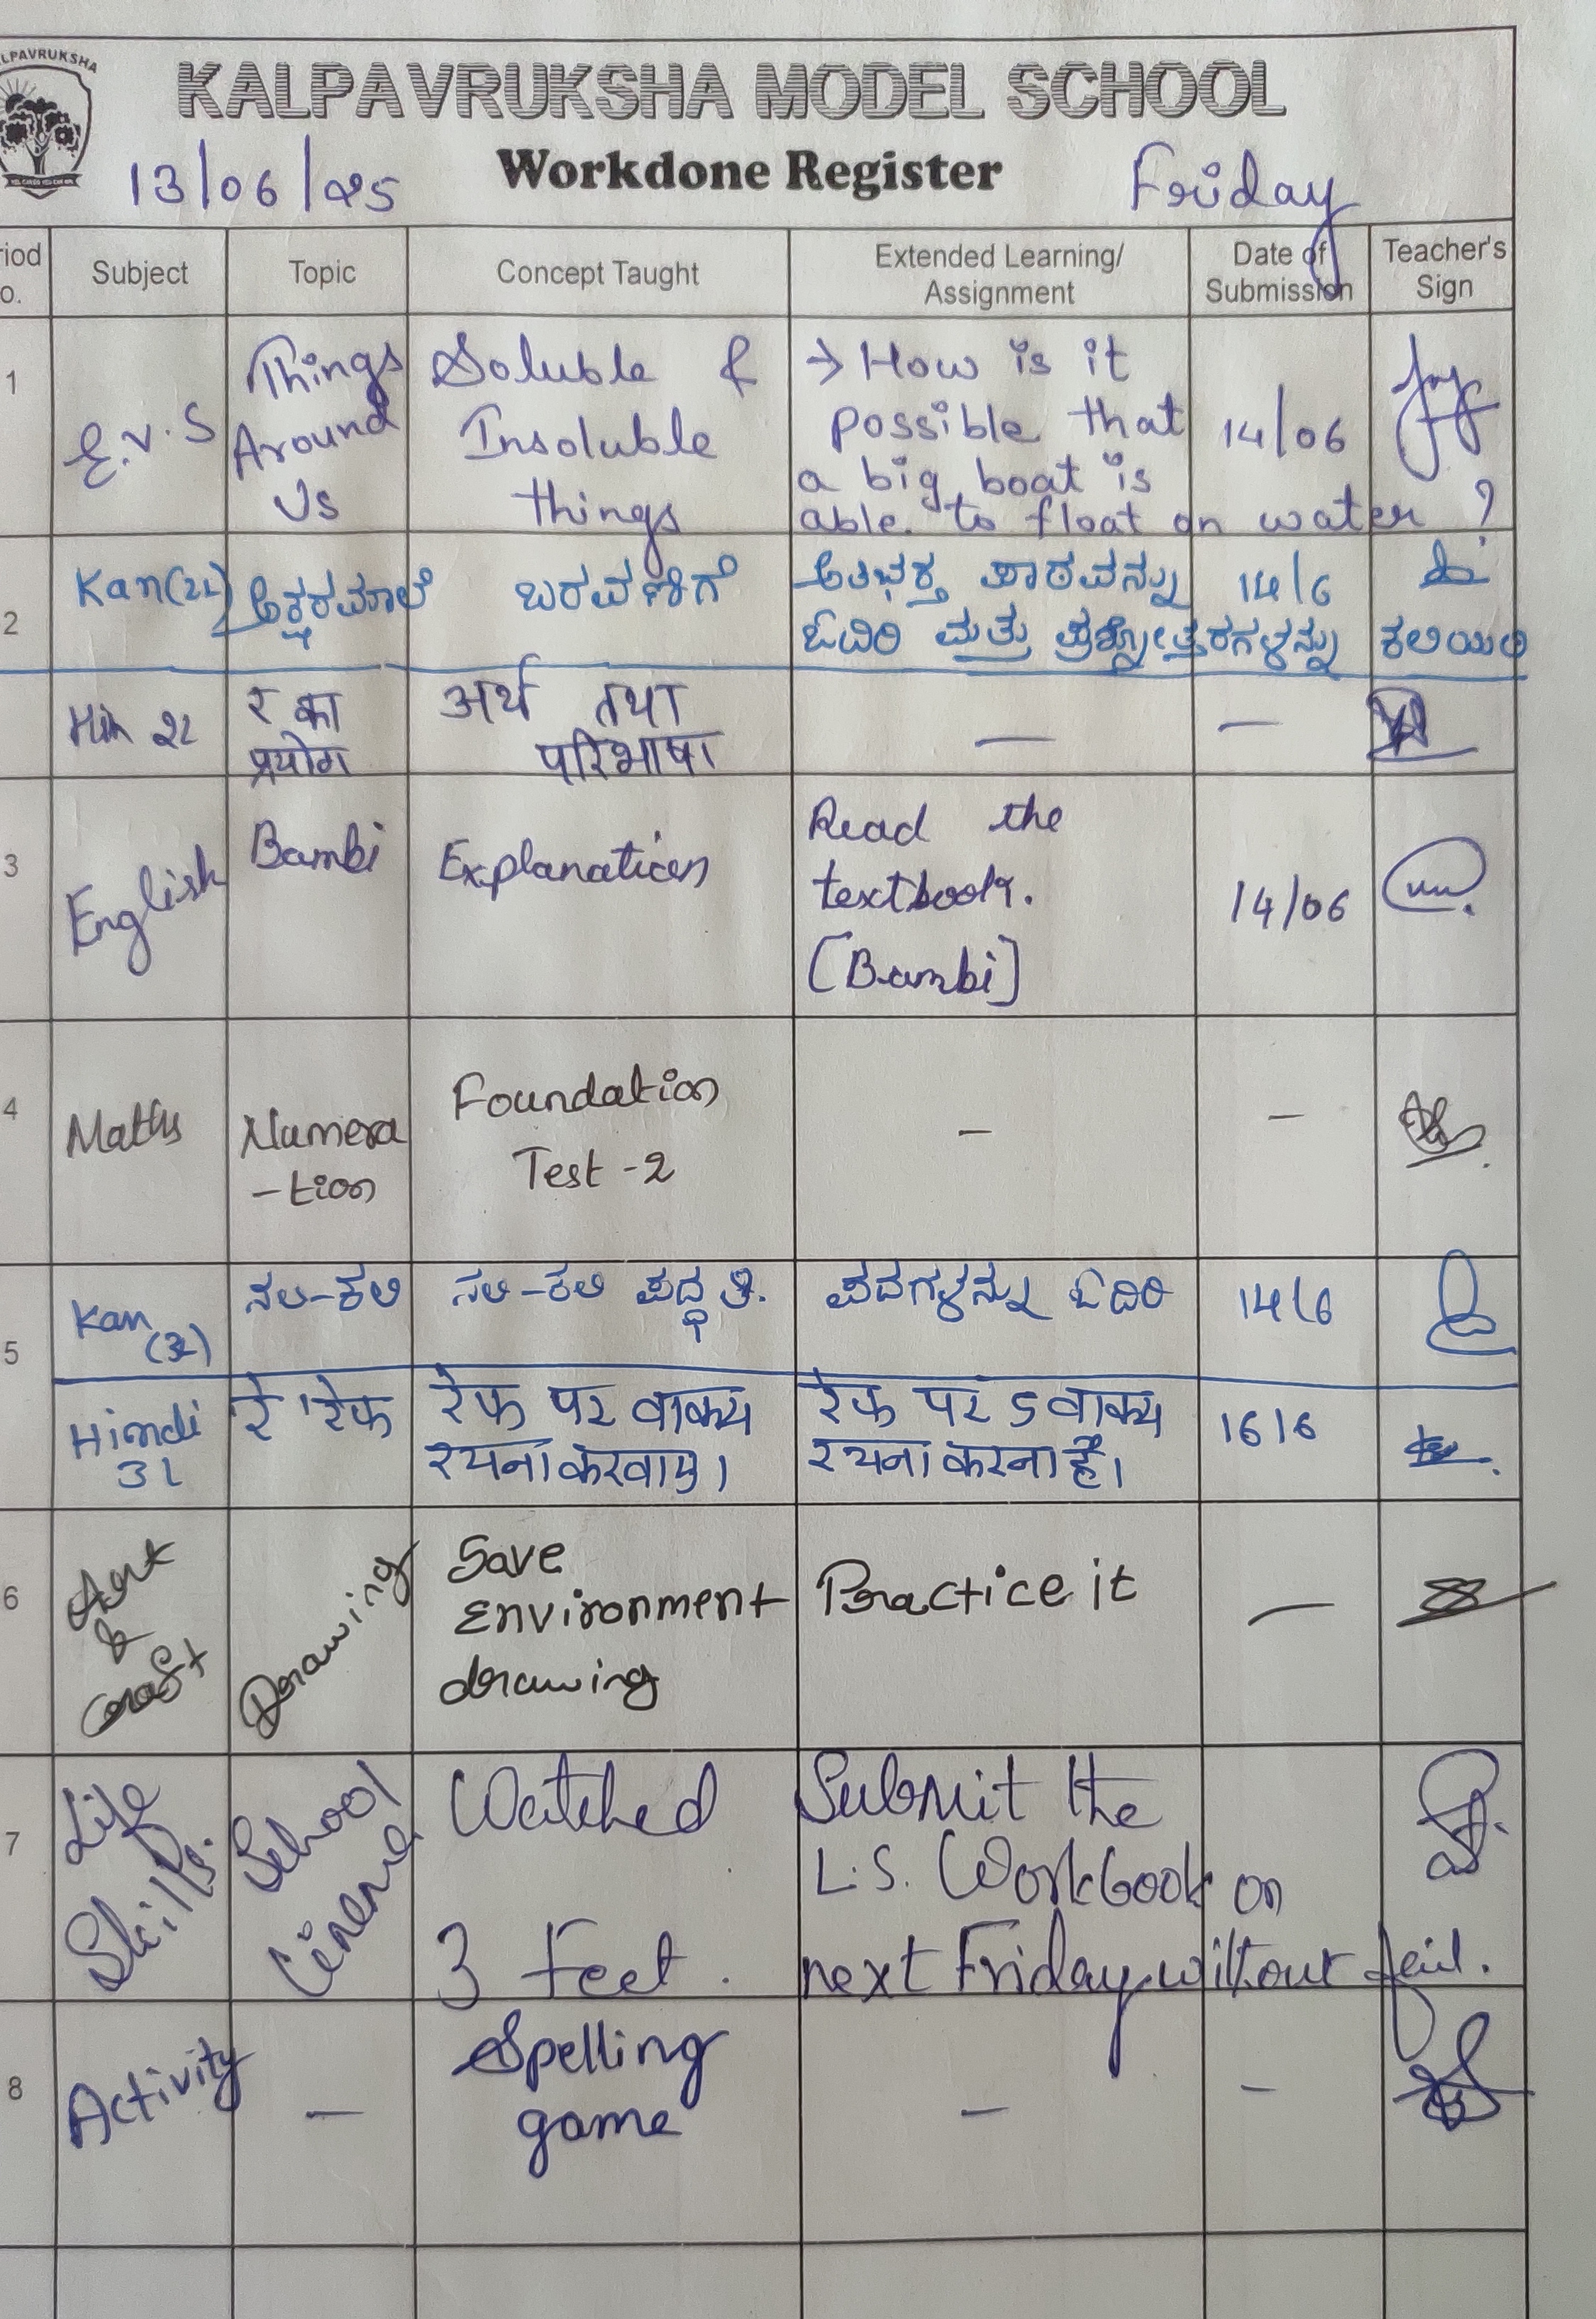 KALPAVRUKSHA MODEL SCHOOL
13/06/25 Workdone Register Friday
Subject Topic Concept Taught Extended Learning/ Assignment Date of Submission Teacher's Sign
1 E.V.S Things Around Us Soluble & Insoluble things → How is it possible that a big boat is able to float on water ? 14/06
2 Kan(2L) ಅಕ್ಷರಮಾಲೆ ಬರವಣಿಗೆ ಪಾಠವನ್ನು ಓದಿರಿ ಮತ್ತು ಪ್ರಶ್ನೋತ್ತರಗಳನ್ನು ಕಲಿಯಿರಿ 14/6
Hin 2L र का प्रयोग अर्थ तथा परिभाषा — —
3 English Bambi Explanation Read the textbook. [Bambi] 14/06
4 Maths Numera -tion Foundation Test -2 – –
5 Kan (3L) ನಲಿ-ಕಲಿ ನಲಿ-ಕಲಿ ಪದ್ಧತಿ. ಪದಗಳನ್ನು ಓದಿರಿ 14/6
Hindi 3L रेफ रेफ पर वाक्य रचना करवाए। रेफ पर 5 वाक्य रचना करना है। 16/6
6 Art & Craft Drawing Save Environment drawing Practice it —
7 Life Skills. School Cinema Watched 3 Feet. Submit the L.S. Workbook on next Friday without fail.
8 Activity — Spelling game – –